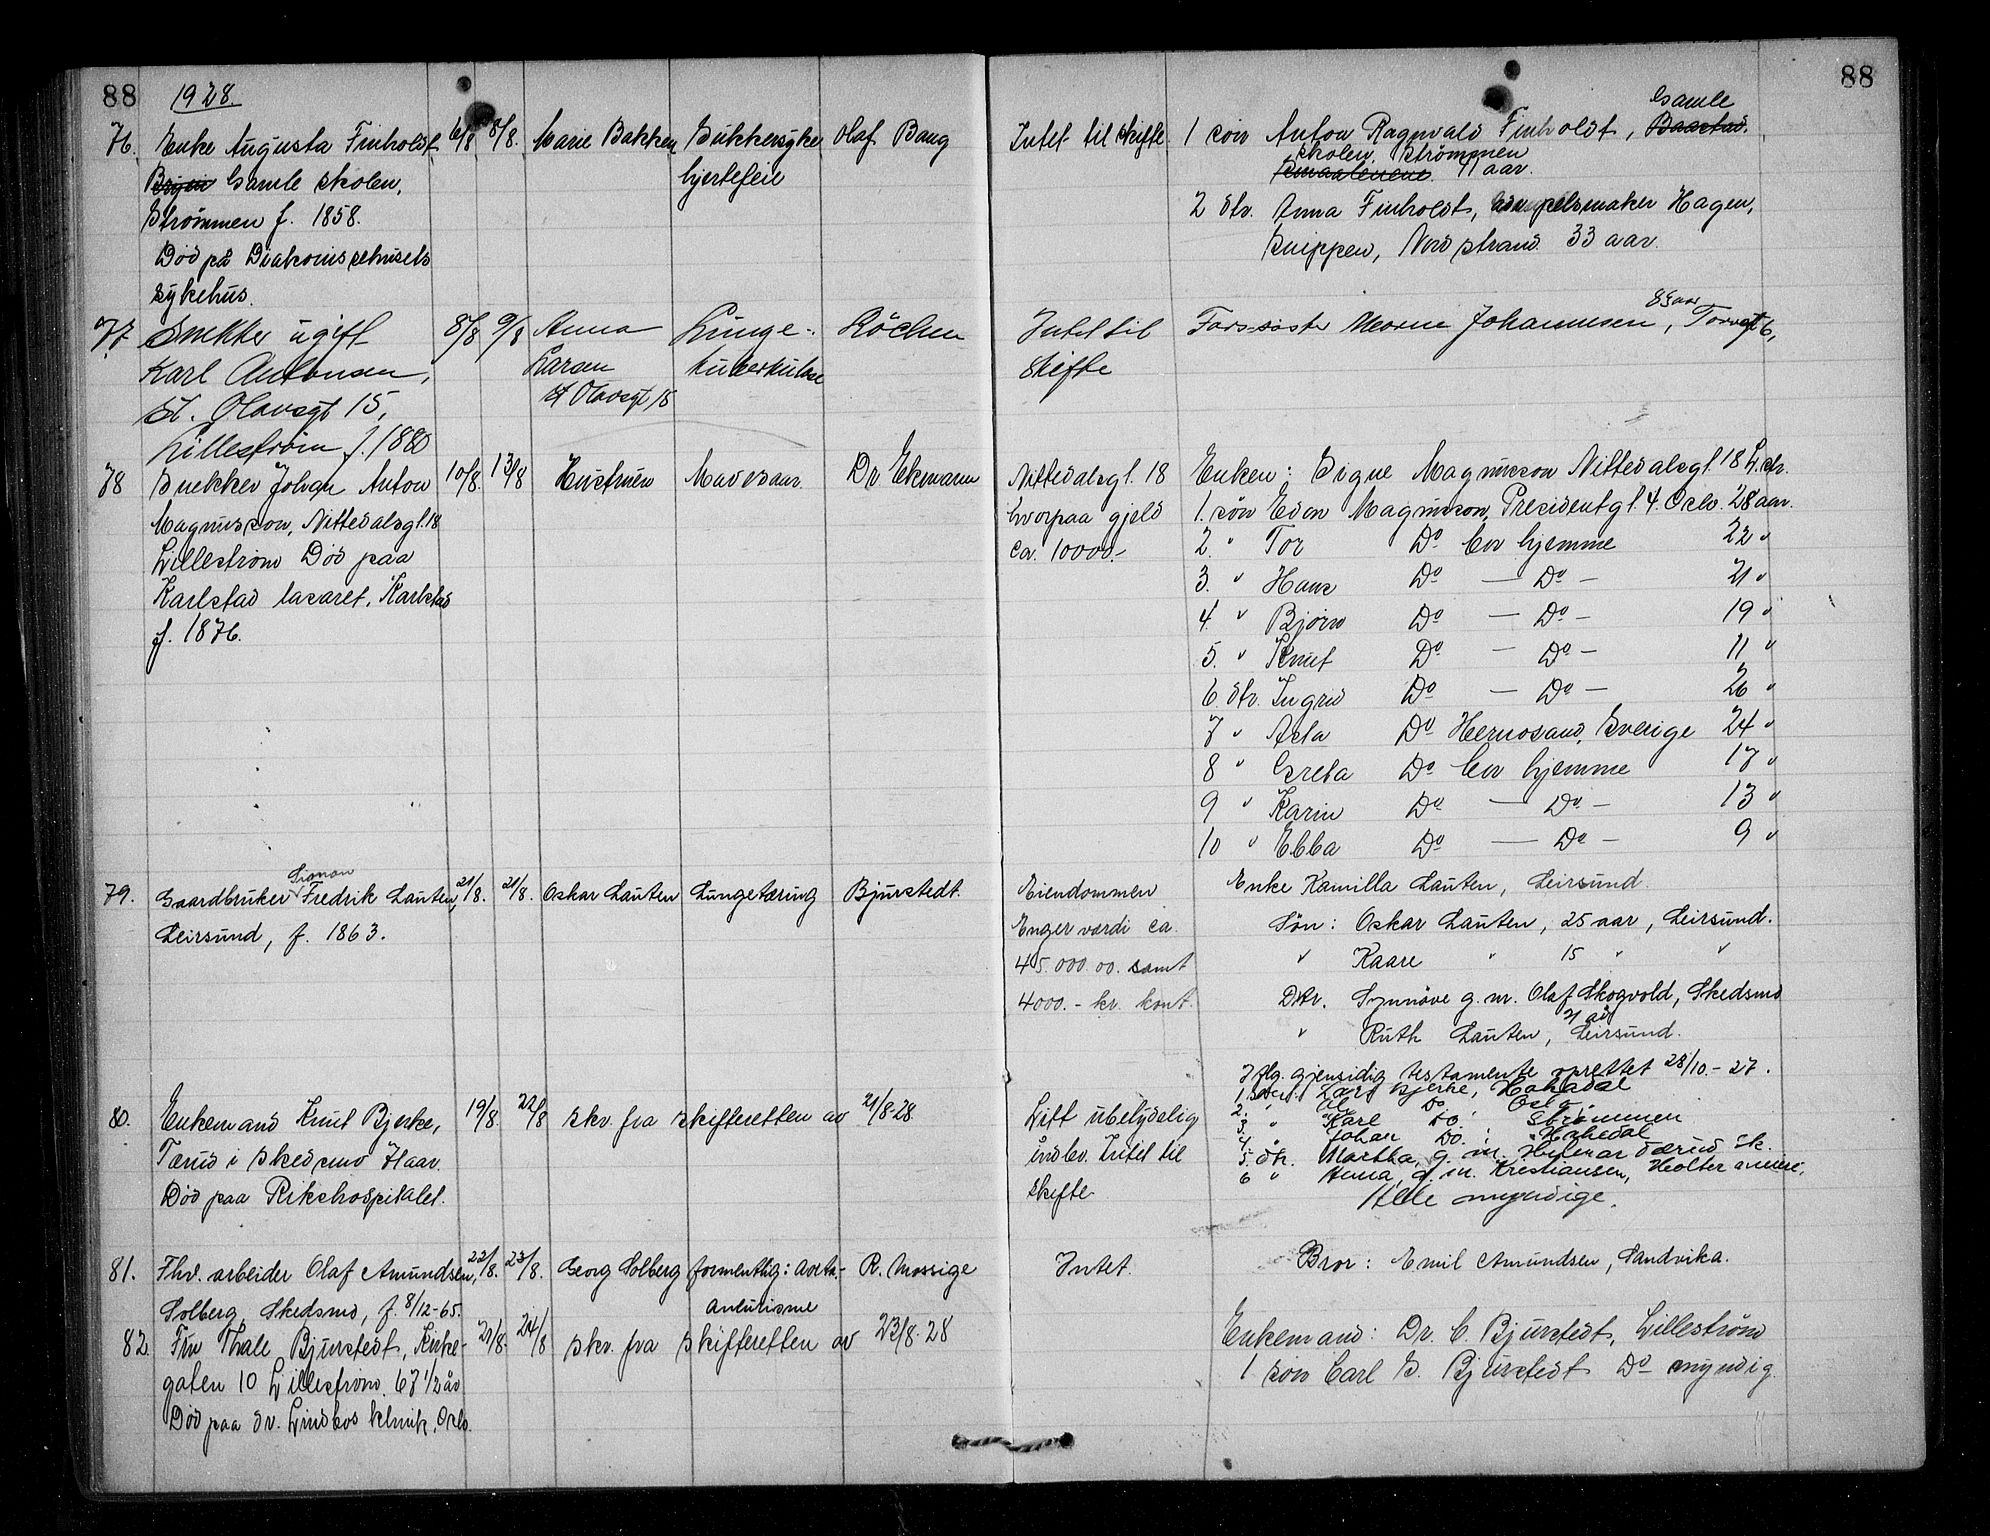 88 1928. 88
76. Enke Augusta Finholdt 6/8 8/8. Marie Bakken Sukkersyke Olaf Bang Intet til skifte 1 søn Anton Ragnvald Finholdt, Gamle
Gamle skolen, hjertefeil skolen, Strømmen 41 aar.
Strømmen f. 1858. 2 dtr. Anna Finholdt, Hagen,
Død på Diakonissehusets Nordstrand 33 aar.
sykehus.
77. Snekker ugift 8/8 9/8 Anna Lunge- Røchen Intet til Fars-søster Johannesen, 83 aar
Karl Antonsen, Larsen tuberkulose skifte
St. Olavsgt 15, St Olavsgt 15
Lillestrøm f. 1880
78 Snekker Johan Anton 10/8. 13/8 Hustruen Mavesaar Dr Ekmann Nittedalsgt. 18 Enken: Signe Magnusson Nittedalsgt. 18 L.str.
Magnusson, Nittedalsgt. 18 hvorpaa gjeld 1. søn Edon Magnusson, Presidentgt. 4. Oslo. 28 aar.
Lillestrøm Død paa ca. 10000.- 2. " Tor Do Er hjemme 22 "
Karlstad lasaret, Karlstad 3. " Hans Do — Do — 21 "
f. 1876. 4. " Bjørn Do — Do — 19 "
5. " Knut Do — Do — 11 "
6. dtr. Ingrid Do — Do — 26 "
7 " Asta Do Hernosand, Sverige 24 "
8 " Greta Do Er hjemme 17 "
9 " Karin Do — Do — 13 "
10 " Ebba Do — Do — 9 "
79. Gaardbruker Simon Fredrik Lauten, 21/8. 21/8. Oskar Lauten Lungetæring Bjurstedt. Eiendommen Enke Kamilla Lauten, Leirsund.
Leirsund, f. 1863. Enger værdi ca. Søn: Oskar Lauten, 25 aar, Leirsund.
45.000.00. samt " Kaare " 15 " "
4000.- kr. kont. Dtr. Synnøve g. m. Olaf Skogvold, Skedsmo
" Ruth Lauten, 21 aar Leirsund.
Iflg. gjensidig testamente oprettet 28/10.-27.
80. Enkemand Knut Bjerke, 19/8. 22/8 skr. fra skifteretten av 21/8-28 Litt ubetydelig 1. Søn: Lars Bjerke, Hakadal
Tærud i Skedsmo Haar. indbo. Intet til 2. " Ole Do Oslo.
Død paa Rikshospitalet. skifte 3. " Karl Do. Strømmen
4. " Johan Do. Hakedal
5. dtr. Martha, g. m. Hilmar Tærud Sk.
6 " Anna, g. m. Kristiansen, Holter
Alle myndige.
81. Fhv. arbeider Olaf Amundsen, 22/8. 23/8. Georg Solberg formentlig: aorta- R. Mossige Intet. Bror: Emil Amundsen, Sandvika.
Solberg, Skedsmo, f. 8/12-65. aneurisme
82. Fru Thale Bjurstedt, Kirke- 21/8. 24/8 skr. fra skifteretten av 23/8.28 Enkemand: Dr. C. Bjurstedt, Lillestrøm
gaten 10 Lillestrøm. 67 1/2 år 1 søn Carl S. Bjurstedt Do myndig
Død paa dr. Lindbos klinik. Oslo.